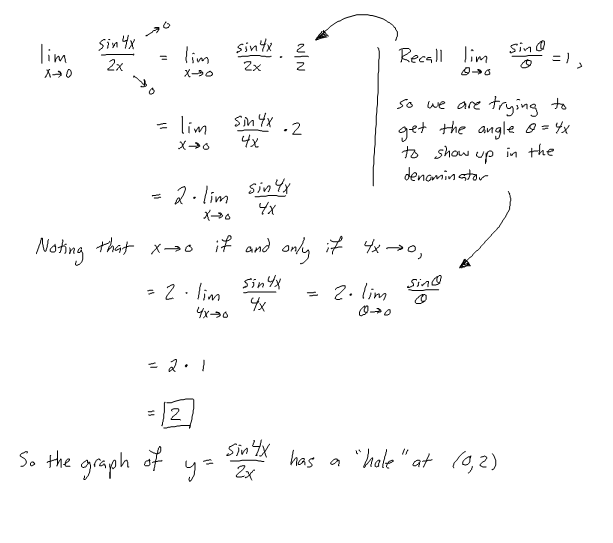 lim x→0 sin4x/2x →0 →0 = lim x→0 sin4x/2x · 2/2
Recall lim θ→0 sinθ/θ = 1,
so we are trying to
get the angle θ = 4x
to show up in the
denominator
= lim x→0 sin4x/4x · 2
= 2 · lim x→0 sin4x/4x
Noting that x→0 if and only if 4x→0,
= 2 · lim 4x→0 sin4x/4x = 2 · lim θ→0 sinθ/θ
= 2 · 1
= 2
So the graph of y = sin4x/2x has a "hole" at (0,2)